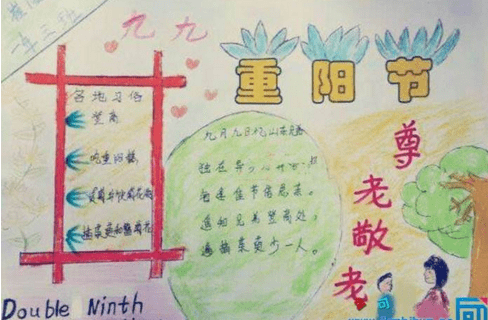 一年三班
九九
重阳节
各地习俗
登高
吃重阳糕
赏菊并饮菊花酒
插茱萸和簪菊花
九月九日忆山东兄弟
独在异
每逢佳节倍思亲。
遥知兄弟登高处,
遍插茱萸少一人。
尊老敬老
Double Ninth